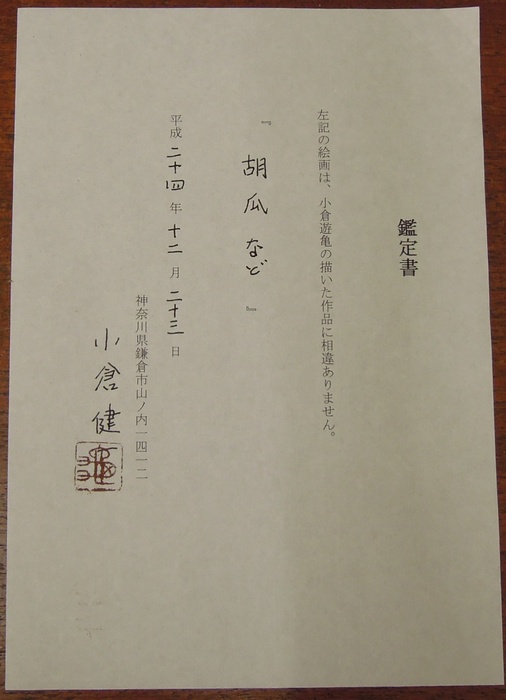 鑑定書
左記の絵画は、小倉遊亀の描いた作品に相違ありません。
『胡瓜 など』
平成 二十四 年 十二 月 二十三 日
神奈川県鎌倉市山ノ内一四一二
小倉 健一